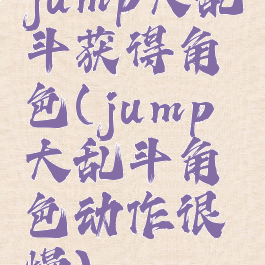 jump大乱
斗获得角
色(jump
大乱斗角
色动作很
慢)